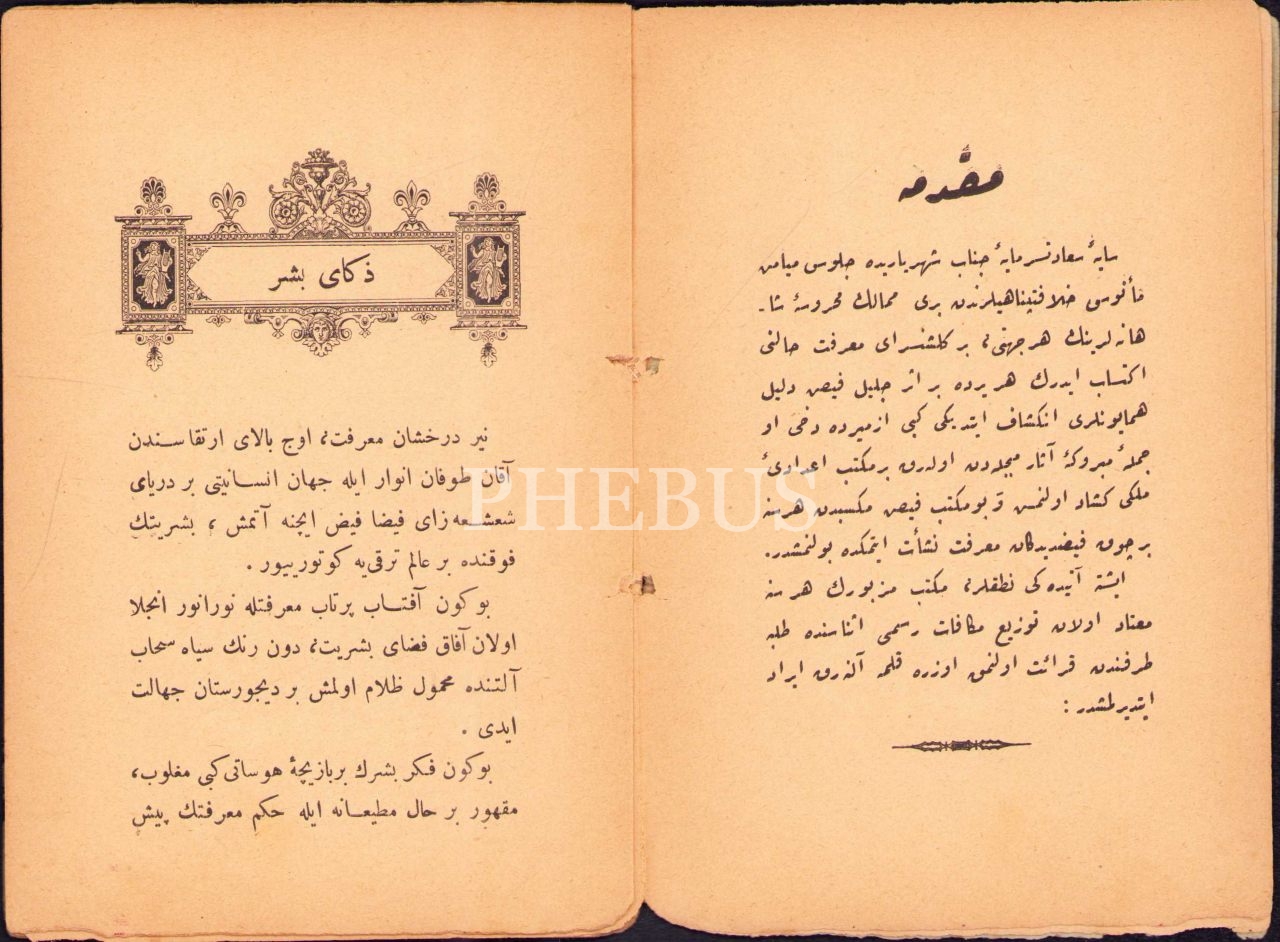 مقدمه
سایهٔ سعادتسرمایهٔ جناب شهریاریده جلوس میامن
مأنوس خلافتپناهیلرندن بری ممالك محروسهٔ شا-
هانه لرینك هر جهتی، بر كلشنسرای معرفت حالنی
اكتساب ایدرك هر یرده بر اثر جلیل فیض دلیل
همایونلری انكشاف ایتدیكی كبی ازمیرده دخی او
جملهٔ مبروكهٔ آثار مبجله‌دن اوله‌رق بر مكتب اعدادیٔ
ملكی كشاد اولنمش و بو مكتب فیض مكسبدن هر سنه
بر چوق فیضدیدكان معرفت نشأت ایتمكده بولنمشدر.
ایشته آتیده كی نطقلر، مكتب مزبورك هر سنه
معتاد اولان توزیع مكافات رسمی اثناسنده طلبه
طرفندن قرائت اولنمق اوزره قلمه آله‌رق ایراد
ایتدیرلمشدر :
ذكای بشر
نیر درخشان معرفت، اوج بالای ارتقاسندن
آقان طوفان انوار ایله جهان انسانیتی بر دریای
شعشعه زای فیضا فیض ایچنه آتمش ، بشریتك
فوقنده بر عالم ترقی‌یه كوتورییور .
بوكون آفتاب پرتاب معرفتله نورانور انجلا
اولان آفاق فضای بشریت، دون رنك سیاه سحاب
آلتنده محمول ظلام اولمش بر دیجورستان جهالت
ایدی .
بوكون فكر بشرك بر بازیچهٔ هوساتی كبی مغلوب،
مقهور بر حال مطیعانه ایله حكم معرفتك پیش
PHEBUS